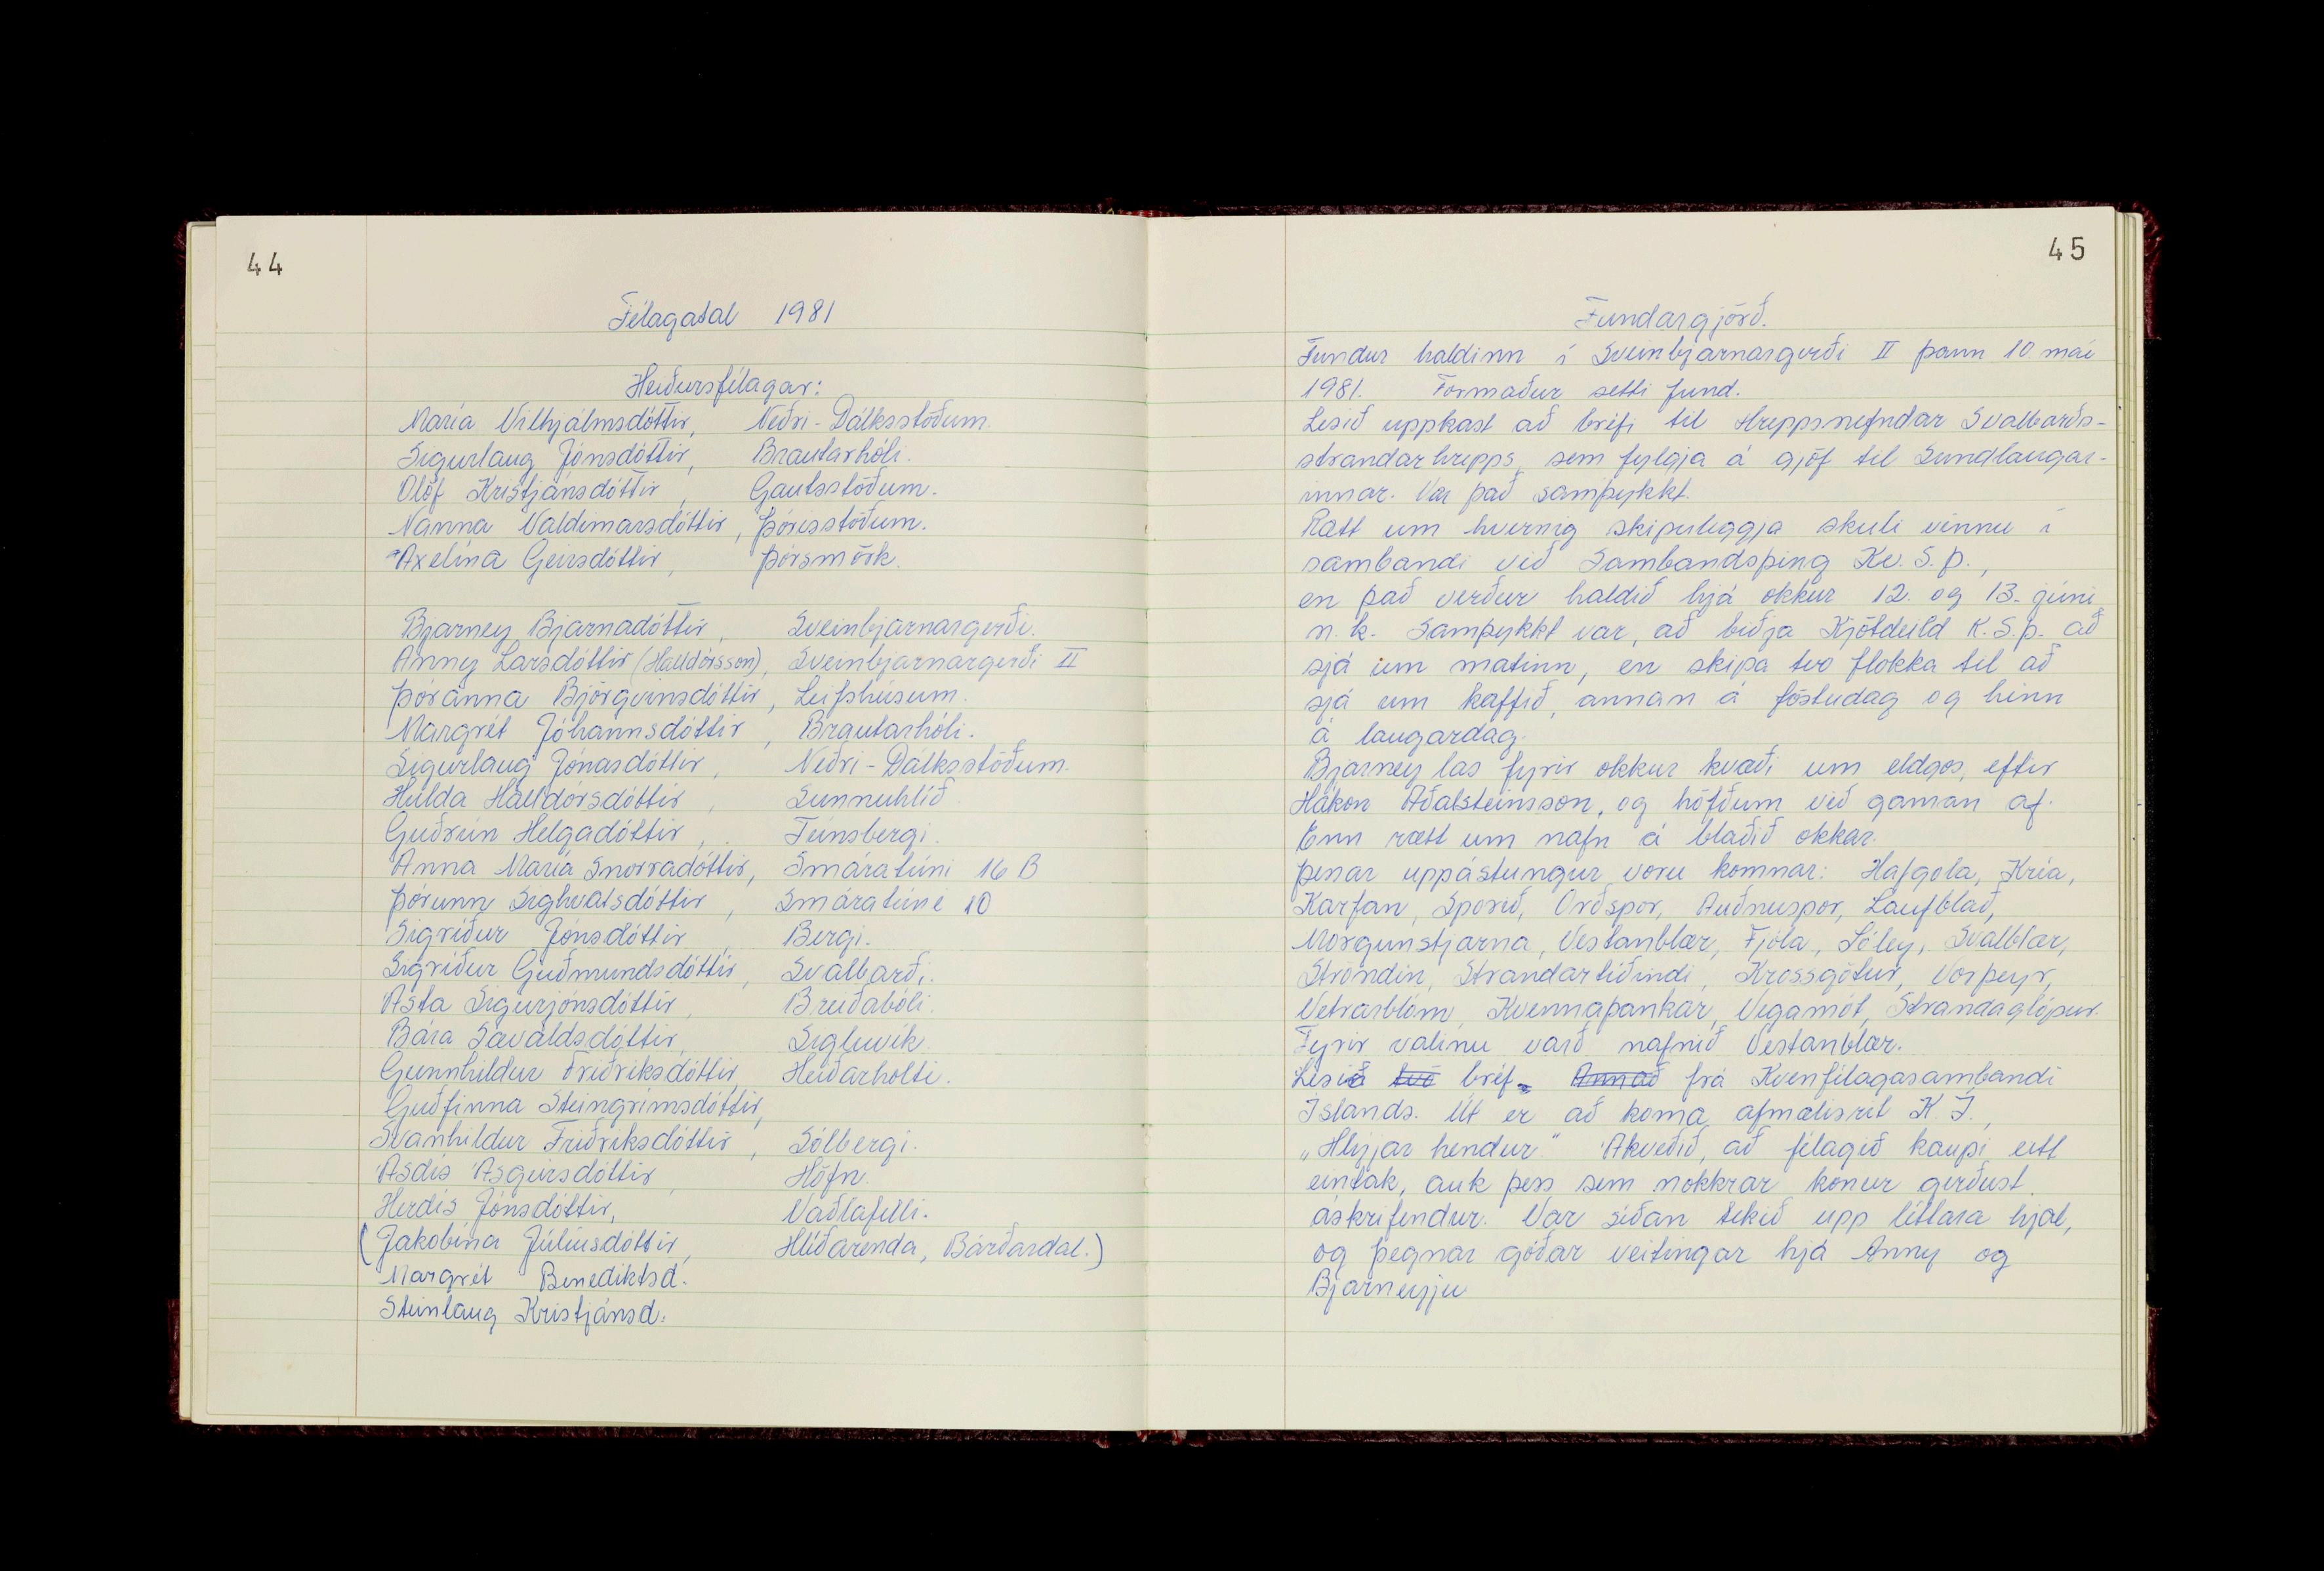 44
Félagatal 1981
Heiðursfélagar:
María Vilhjálmsdóttir, Neðri-Dálksstöðum.
Sigurlaug Jónsdóttir, Brautarhóli.
Ólöf Kristjánsdóttir, Gautsstöðum.
Nanna Valdimarsdóttir, Þórisstöðum.
Axelína Geirsdóttir, Þórsmörk.
Bjarney Bjarnadóttir, Sveinbjarnargerði.
Anný Larsdóttir (Halldórsson), Sveinbjarnargerði II
Þóranna Björgvinsdóttir, Leifshúsum.
Margrét Jóhannsdóttir, Brautarhóli.
Sigurlaug Jónasdóttir, Neðri-Dálksstöðum.
Hulda Halldórsdóttir, Sunnuhlíð
Guðrún Helgadóttir, Túnsbergi.
Anna María Snorradóttir, Smáratúni 16 B
Þórunn Sighvatsdóttir, Smáratúni 10
Sigríður Jónsdóttir, Bergi.
Sigríður Guðmundsdóttir, Svalbarði.
Ásta Sigurjónsdóttir, Breiðabóli.
Bára Sævaldsdóttir, Sigluvík.
Gunnhildur Friðriksdóttir, Heiðarholti.
Guðfinna Steingrímsdóttir,
Svanhildur Friðriksdóttir, Sólbergi.
Ásdís Ásgeirsdóttir, Höfn.
Herdís Jónsdóttir, Vaðlafelli.
(Jakobína Júlíusdóttir, Hlíðarenda, Bárðardal.)
Margrét Benediktsd.
Steinlaug Kristjánsd.
45
Fundargjörð.
Fundur haldinn í Sveinbjarnargerði II þann 10. maí
1981. Formaður setti fund.
Lesið uppkast að bréfi til Hreppsnefndar Svalbarðs-
strandarhrepps, sem fylgja á gjöf til Sundlaugar-
innar. Var það samþykkt.
Rætt um hvernig skipuleggja skuli vinnu í
sambandi við Sambandsþing Kv. S. Þ.,
en það verður haldið hjá okkur 12. og 13. júní
n.k. Samþykkt var, að biðja Kjötdeild K.S.Þ. að
sjá um matinn, en skipa tvo flokka til að
sjá um kaffið, annan á föstudag og hinn
á laugardag.
Bjarney las fyrir okkur kvæði um eldgos, eftir
Hákon Aðalsteinsson, og höfðum við gaman af.
Enn rætt um nafn á blaðið okkar.
Þenar uppástungur voru komnar: Hafgola, Kría,
Karfan, Sporið, Orðspor, Auðnuspor, Laufblað,
Morgunstjarna, Vestanblær, Fjóla, Sóley, Svalblær,
Ströndin, Strandartíðindi, Krossgötur, Vorþeyr,
Vetrarblóm, Kvennaþankar, Vegamót, Strandaglópur.
Fyrir valinu varð nafnið Vestanblær.
Lesið tvö bréf. Annað frá Kvenfélagasambandi
Íslands. Út er að koma afmælisrit K.Í.,
„Hlýjar hendur“ Ákveðið, að félagið kaupi eitt
eintak, auk þess sem nokkrar konur gerðust
áskrifendur. Var síðan tekið upp léttara hjal,
og þegnar góðar veitingar hjá Anny og
Bjarneyju